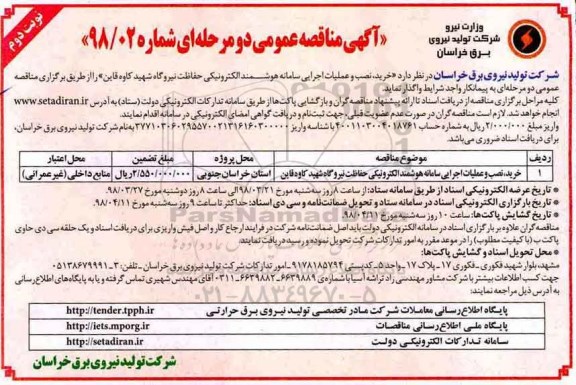 نوبت دوم
وزارت نیرو
شرکت تولید نیروی برق خراسان
«آگهی مناقصه عمومی دو مرحله‌ای شماره ۹۸/۰۲»
شرکت تولید نیروی برق خراسان در نظر دارد «خرید، نصب و عملیات اجرایی سامانه هوشمند الکترونیکی حفاظت نیروگاه شهید کاوه قاین» را از طریق برگزاری مناقصه
عمومی دو مرحله‌ای به پیمانکار واجد شرایط واگذار نماید.
کلیه مراحل برگزاری مناقصه از دریافت اسناد تا ارائه پیشنهاد مناقصه گران و بازگشایی پاکت‌ها از طریق سامانه تدارکات الکترونیکی دولت (ستاد) به آدرس www.setadiran.ir
انجام خواهد شد. لازم است مناقصه گران در صورت عدم عضویت قبلی، جهت ثبت نام و دریافت گواهی امضای الکترونیکی در سامانه اقدام نمایند.
واریز مبلغ ۲/۰۰۰/۰۰۰ ریال به شماره حساب ۴۰۰۱۱۰۳۰۰۴۰۱۸۷۶۱ با شناسه واریز به نام شرکت تولید نیروی برق خراسان،
برای دریافت اسناد ضروری می‌باشد.
ردیف موضوع مناقصه محل پروژه مبلغ تضمین محل اعتبار
۱ خرید، نصب و عملیات اجرایی سامانه هوشمند الکترونیکی حفاظت نیروگاه شهید کاوه قاین استان خراسان جنوبی ۲/۵۵۰/۰۰۰/۰۰۰ ریال منابع داخلی (غیر عمرانی)
* تاریخ عرضه الکترونیکی اسناد از طریق سامانه ستاد: از ساعت ۸ صبح روز سه‌شنبه مورخ ۹۸/۰۳/۲۱ الی ساعت ۸ روز دوشنبه مورخ ۹۸/۰۳/۲۷
* تاریخ بارگزاری الکترونیکی اسناد در سامانه ستاد و تحویل ضمانت‌نامه و سی دی اسناد: حداکثر تا ساعت ۹ روز سه‌شنبه مورخ ۹۸/۰۴/۱۱
* تاریخ گشایش پاکت‌ها: ساعت ۱۰ روز سه‌شنبه مورخ ۹۸/۰۴/۱۱
مناقصه گران علاوه بر بارگزاری اسناد در سامانه الکترونیکی دولت باید اصل ضمانت‌نامه شرکت در فرایند ارجاع کار و اصل فیش واریزی برای دریافت اسناد و یک حلقه سی دی حاوی
پاکت ب (با کیفیت مطلوب) را در موعد مقرر به امور تدارکات شرکت تحویل نموده و رسید دریافت نمایند.
* محل تحویل اسناد و گشایش پاکت‌ها:
مشهد، بلوار شهید فکوری - فکوری ۱۷ - پلاک ۱۷ - واحد ۵ - کدپستی ۹۱۷۸۱۸۵۷۹۴ - امور تدارکات شرکت تولید نیروی برق خراسان - تلفن: ۳-۰۵۱۳۸۶۷۹۹۹۱
جهت کسب اطلاعات بیشتر با شرکت مشاور مهندسی راد ترانه آسیا با شماره‌های آقای مهندس شهیری تماس گرفته و یا به پایگاه‌های اطلاع‌رسانی
به آدرس ذیل مراجعه نمایند:
پایگاه اطلاع‌رسانی معاملات شرکت مادر تخصصی تولید نیروی برق حرارتی http://tender.tpph.ir
پایگاه ملی اطلاع‌رسانی مناقصات http://iets.mporg.ir
سامانه تدارکات الکترونیکی دولت http://setadiran.ir
شرکت تولید نیروی برق خراسان
ParsNamad
۰۲۱-۸۸۳۴۹۶۷۰-۵